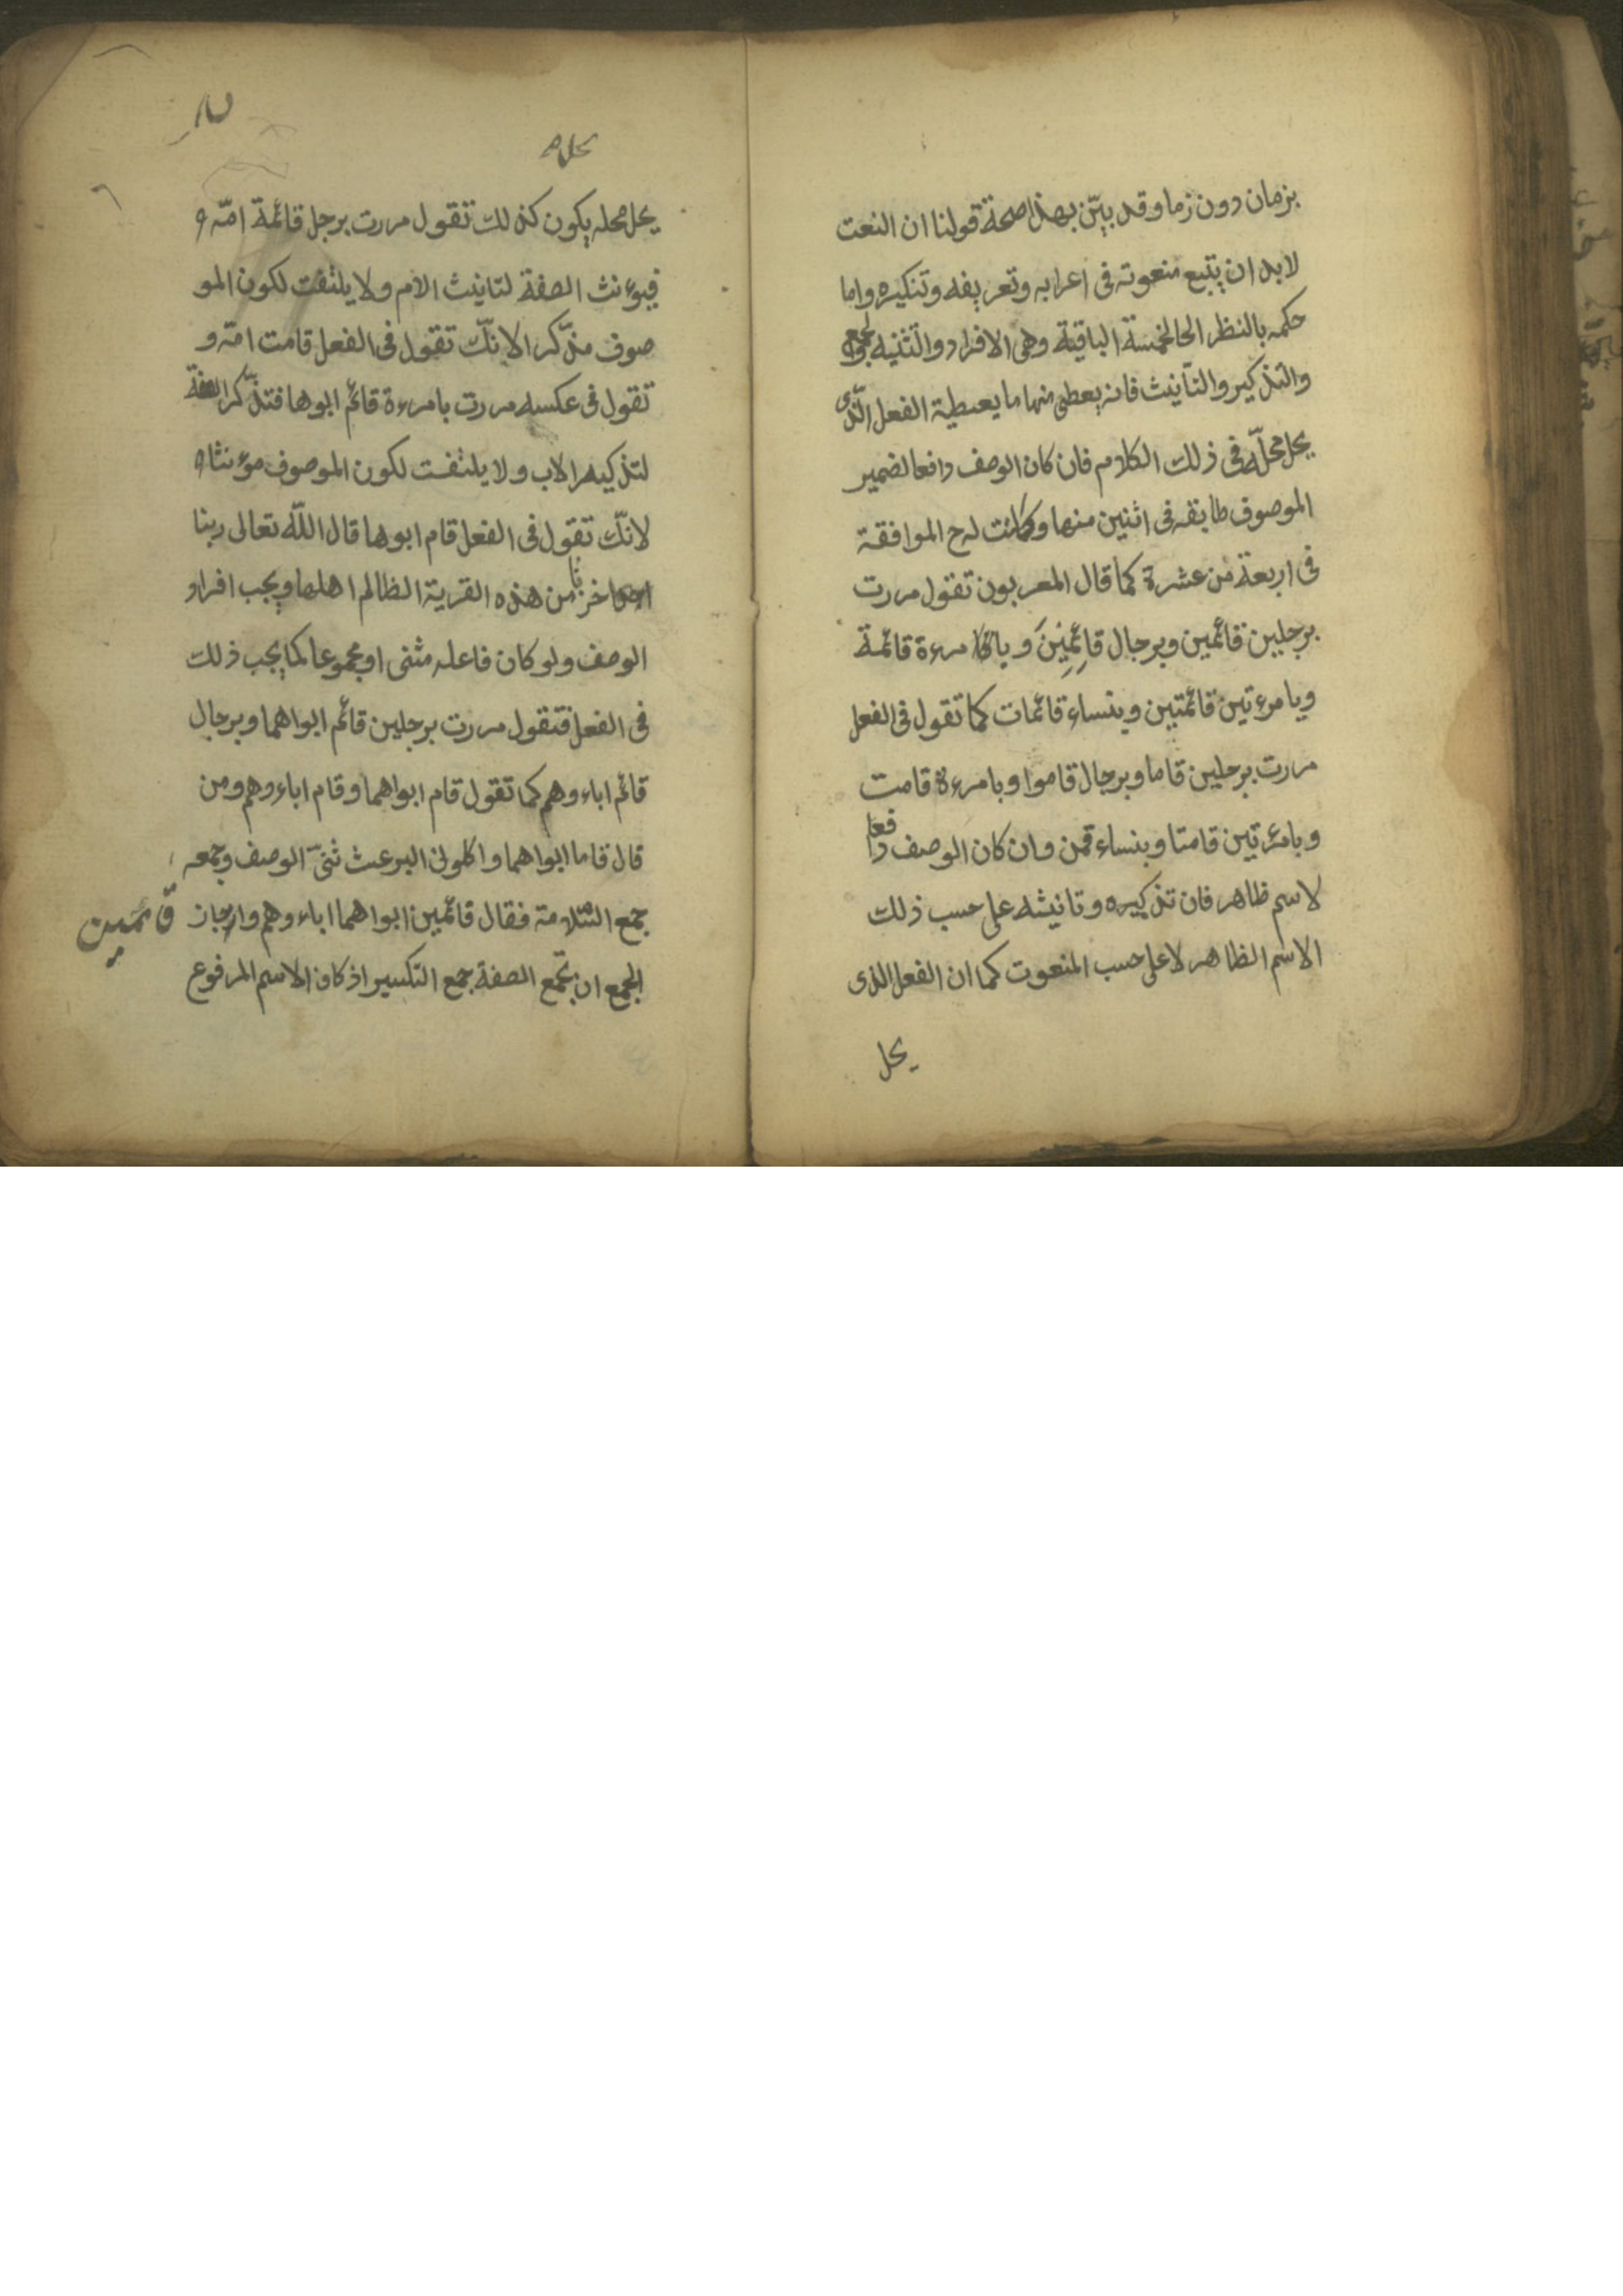 بزمان دون زما وقد بيّن بهذا صحة قولنا ان النعت
لابد ان يتبع منعوته فى اعرابه وتعريفه وتنكيره واما
حكمه بالنظر الى الخمسة الباقية وهى الافراد والتثنيه والجمع
والتذكير والتانيث فانه يعطى منها ما يعطية الفعل الّذى
يحل محلّه فى ذلك الكلام فان كان الوصف رافعا لضمير
الموصوف طابقه فى اثنين منها وكملت له ح الموافقة
فى اربعة من عشرة كما قال المعربون تقول مررت
برجلين قائمين وبرجال قائِمِينَ و بامرءة قائمة
وبامرءتين قائمتين وبنساء قائمات كما تقول فى الفعل
مررت برجلين قاما وبرجال قاموا وبامرءة قامت
وبامرءتين قامتا وبنساء قمن وان كان الوصف رافعا
لاسم ظاهر فان تذكيره وتانيثه على حسب ذلك
الاسم الظاهر لا على حسب المنعوت كما ان الفعل الذى
يحل
يحل محله يكون كذلك تقول مررت برجل قائمة امّه
فيوءنث الصفة لتانيث الام ولا يلتفت لكون المو
صوف مذّكرا لانّك تقول فى الفعل قامت امّه و
تقول فى عكسه مررت بامرءة قائم ابوها فتذّكر الصفة
لتذكير الاب ولا يلتفت لكون الموصوف موءنثا
لانّك تقول فى الفعل قام ابوها قال اللّه تعالى ربنا
اخرجنا من هذه القرية الظالم اهلها ويجب افراد
الوصف ولو كان فاعله مثنى او مجموعا كما يجب ذلك
فى الفعل فتقول مررت برجلين قائم ابواهما وبرجال
قائم اباءوهم كما تقول قام ابواهما وقام اباءوهم ومن
قال قاما ابواهما واكلونى البرعث ثنىّ الوصف وجمعه
جمع السّلامة فقال قائمين ابواهما اباءوهم واجاز
قائمين
الجمع ان تجمع الصفة جمع التكسير اذ كان الاسم المرفوع